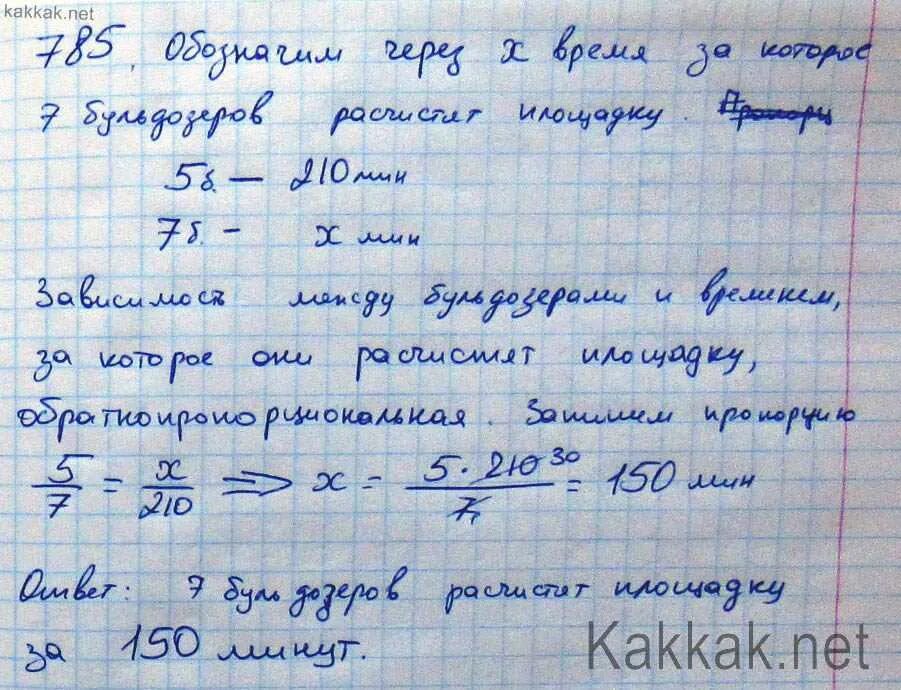 kakkak.net
785. Обозначим через x время за которое
7 бульдозеров расчистят площадку.
5б. — 210 мин
7б. - x мин
Зависимость между бульдозерами и временем,
за которое они расчистят площадку,
обратнопропорциональная. Запишем пропорцию
5/7 = x/210 => x = 5 · 210 30 / 7 1 = 150 мин
Ответ: 7 бульдозеров расчистят площадку
за 150 минут.
Kakkak.net